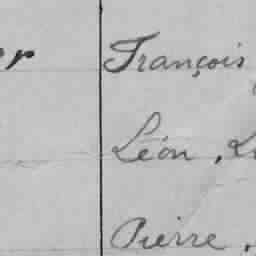 François
Léon,
Pierre,